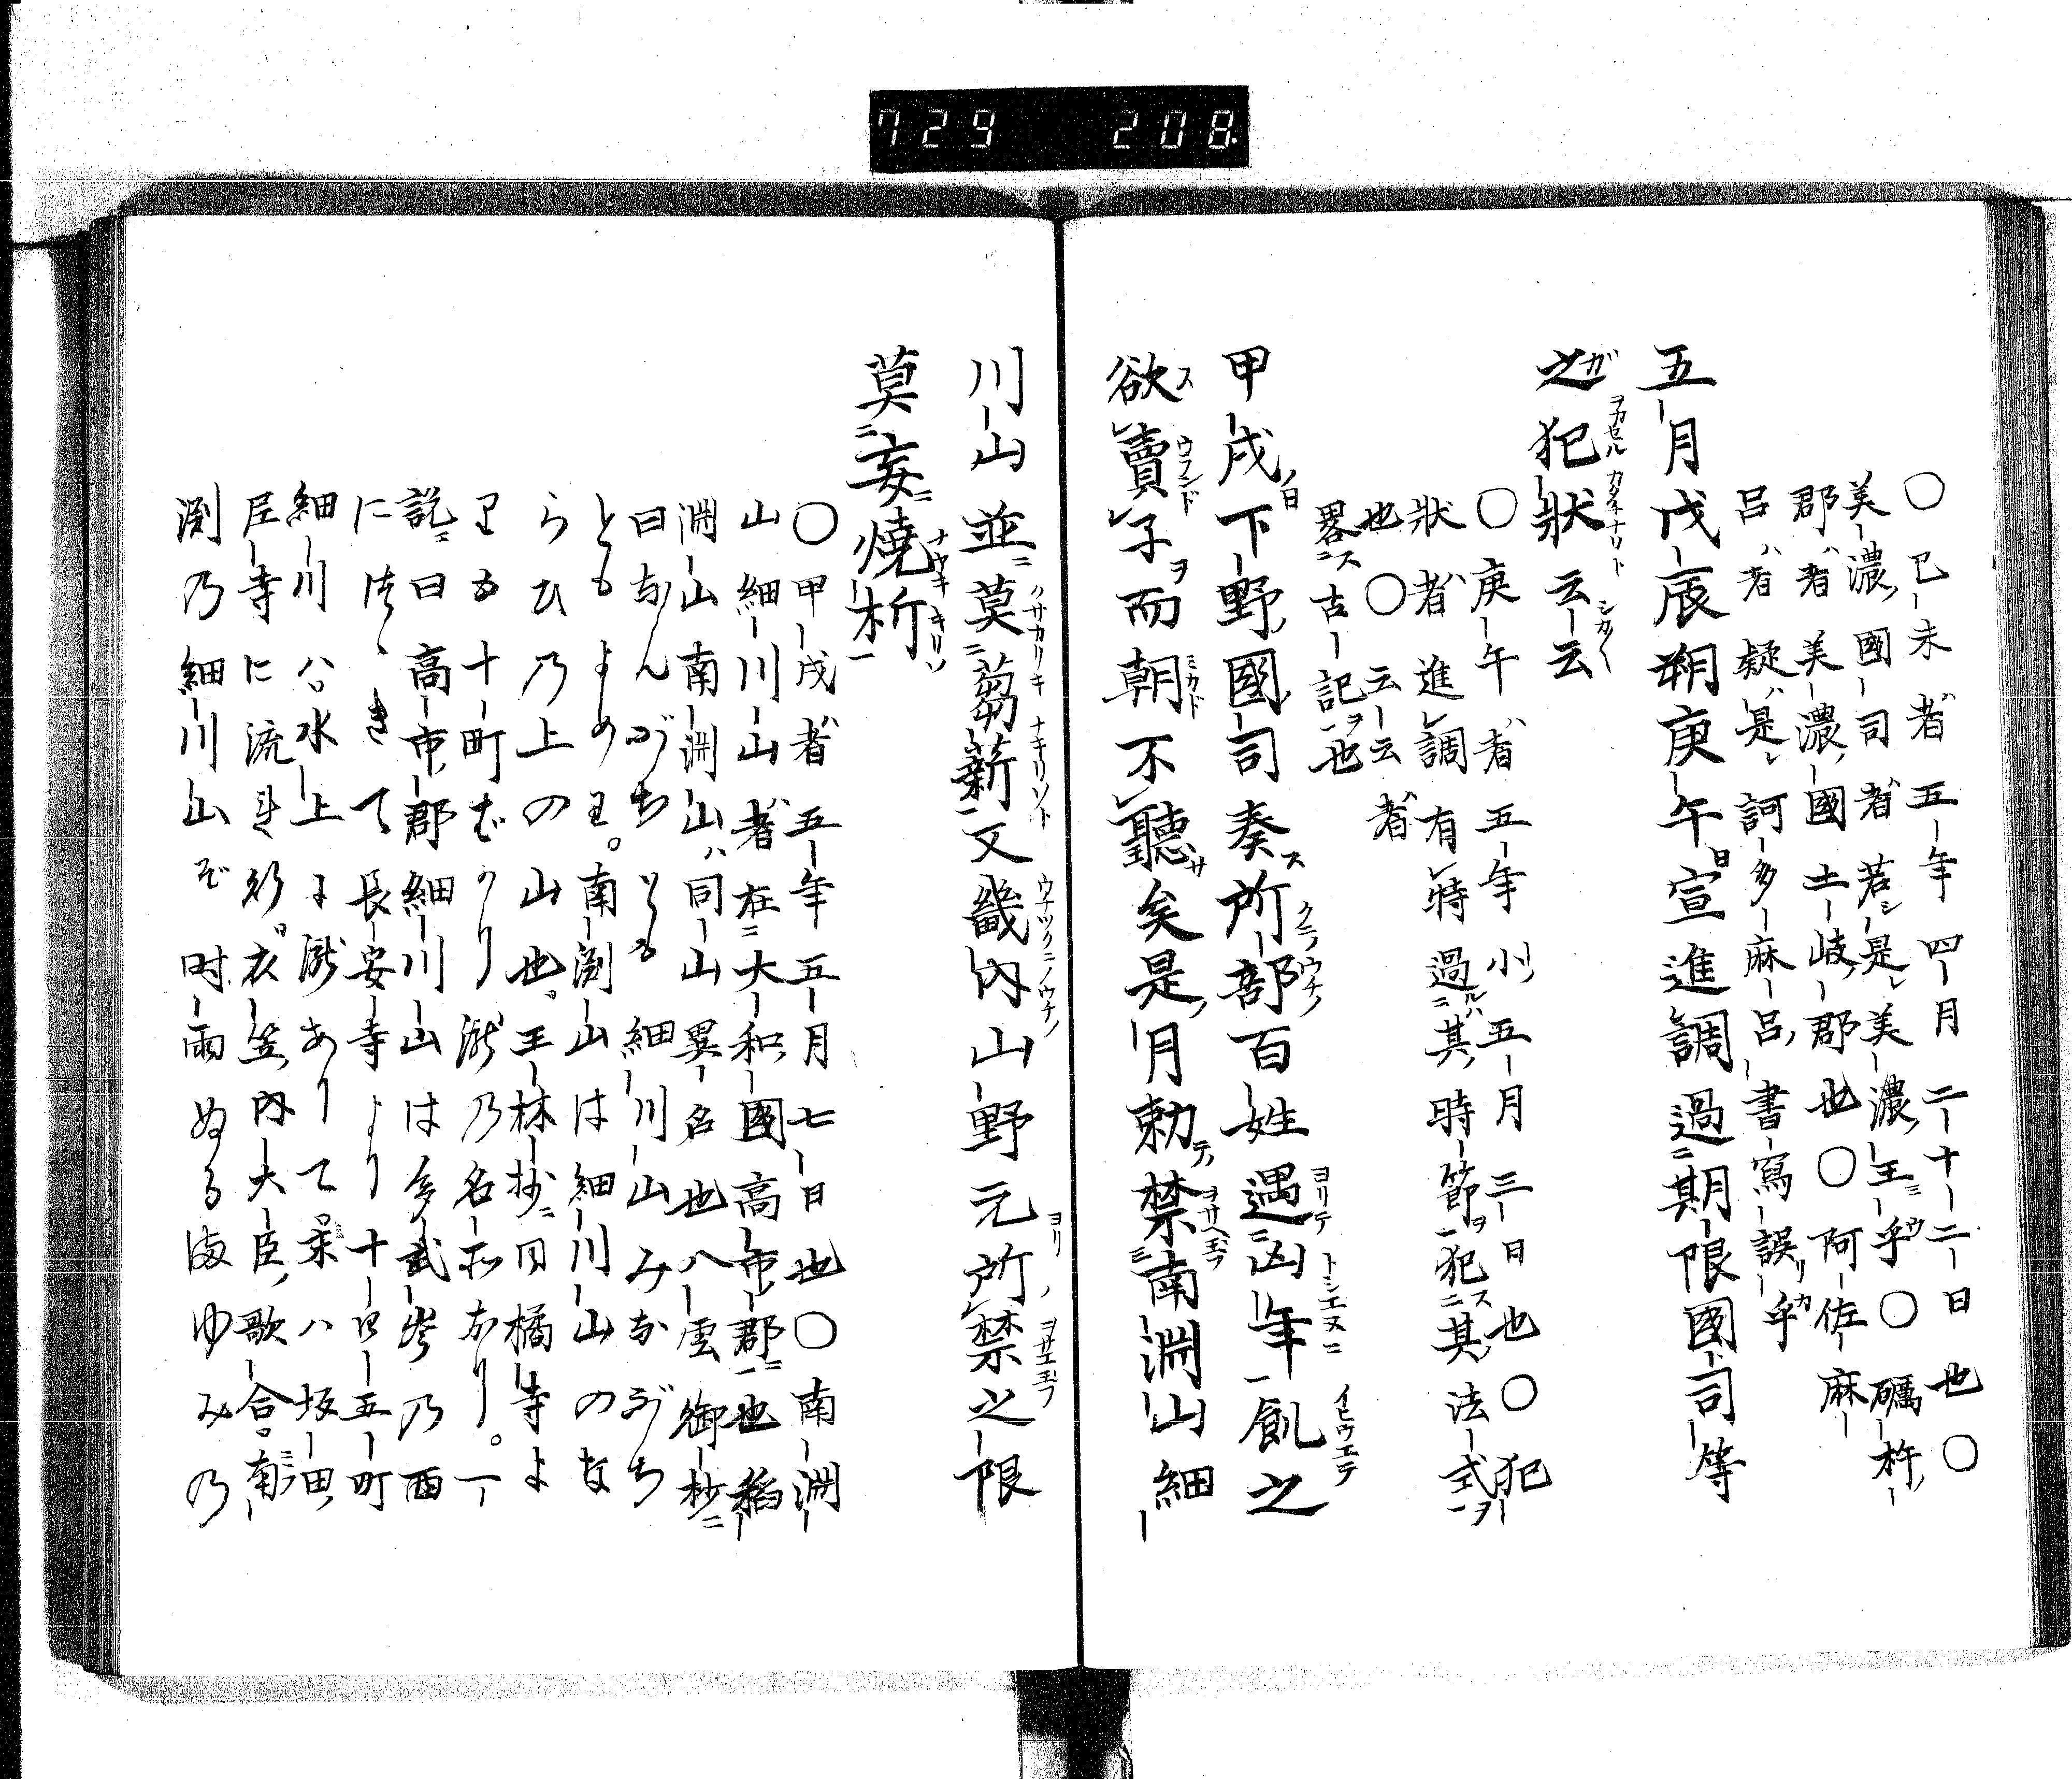 729 208
〇己未者五年四月二十二日也〇
美濃國司者若是美濃王乎〇礪杵
郡者美濃國土岐郡也〇阿佐麻
呂者疑是訶多麻呂書寫誤乎
五月戊辰朔庚午宣進調過期限國司等
之犯狀云云
〇庚午者五年小五月三日也〇犯
狀者進調有時過其時節犯其法式
也〇云云者
畧古記也
甲戌下野國司奏所部百姓遇凶年飢之
欲賣子而朝不聽矣是月勅禁南淵山細
川山並莫蒭薪又畿內山野元所禁之限
莫妄燒折
〇甲戌者五年五月七日也〇南淵
山細川山者在大和國高市郡也稻
淵山南淵山同山異名也八雲御抄
曰なんぶちいるゝ細川山みなぶち
ともよめり。南淵山は細川山のな
らひ乃上の山也。王林抄同橘寺よ
り五十町ばかり瀧乃名所なり。一
說曰高市郡細川山は多武峯乃西
に徃きて長安寺より十四五町
細川ハ水上に瀧ありて末ハ坂田
尼寺に流れ行。衣笠內大臣歌合。南
淵乃細川山ぞ時雨ぬるまゆみ乃